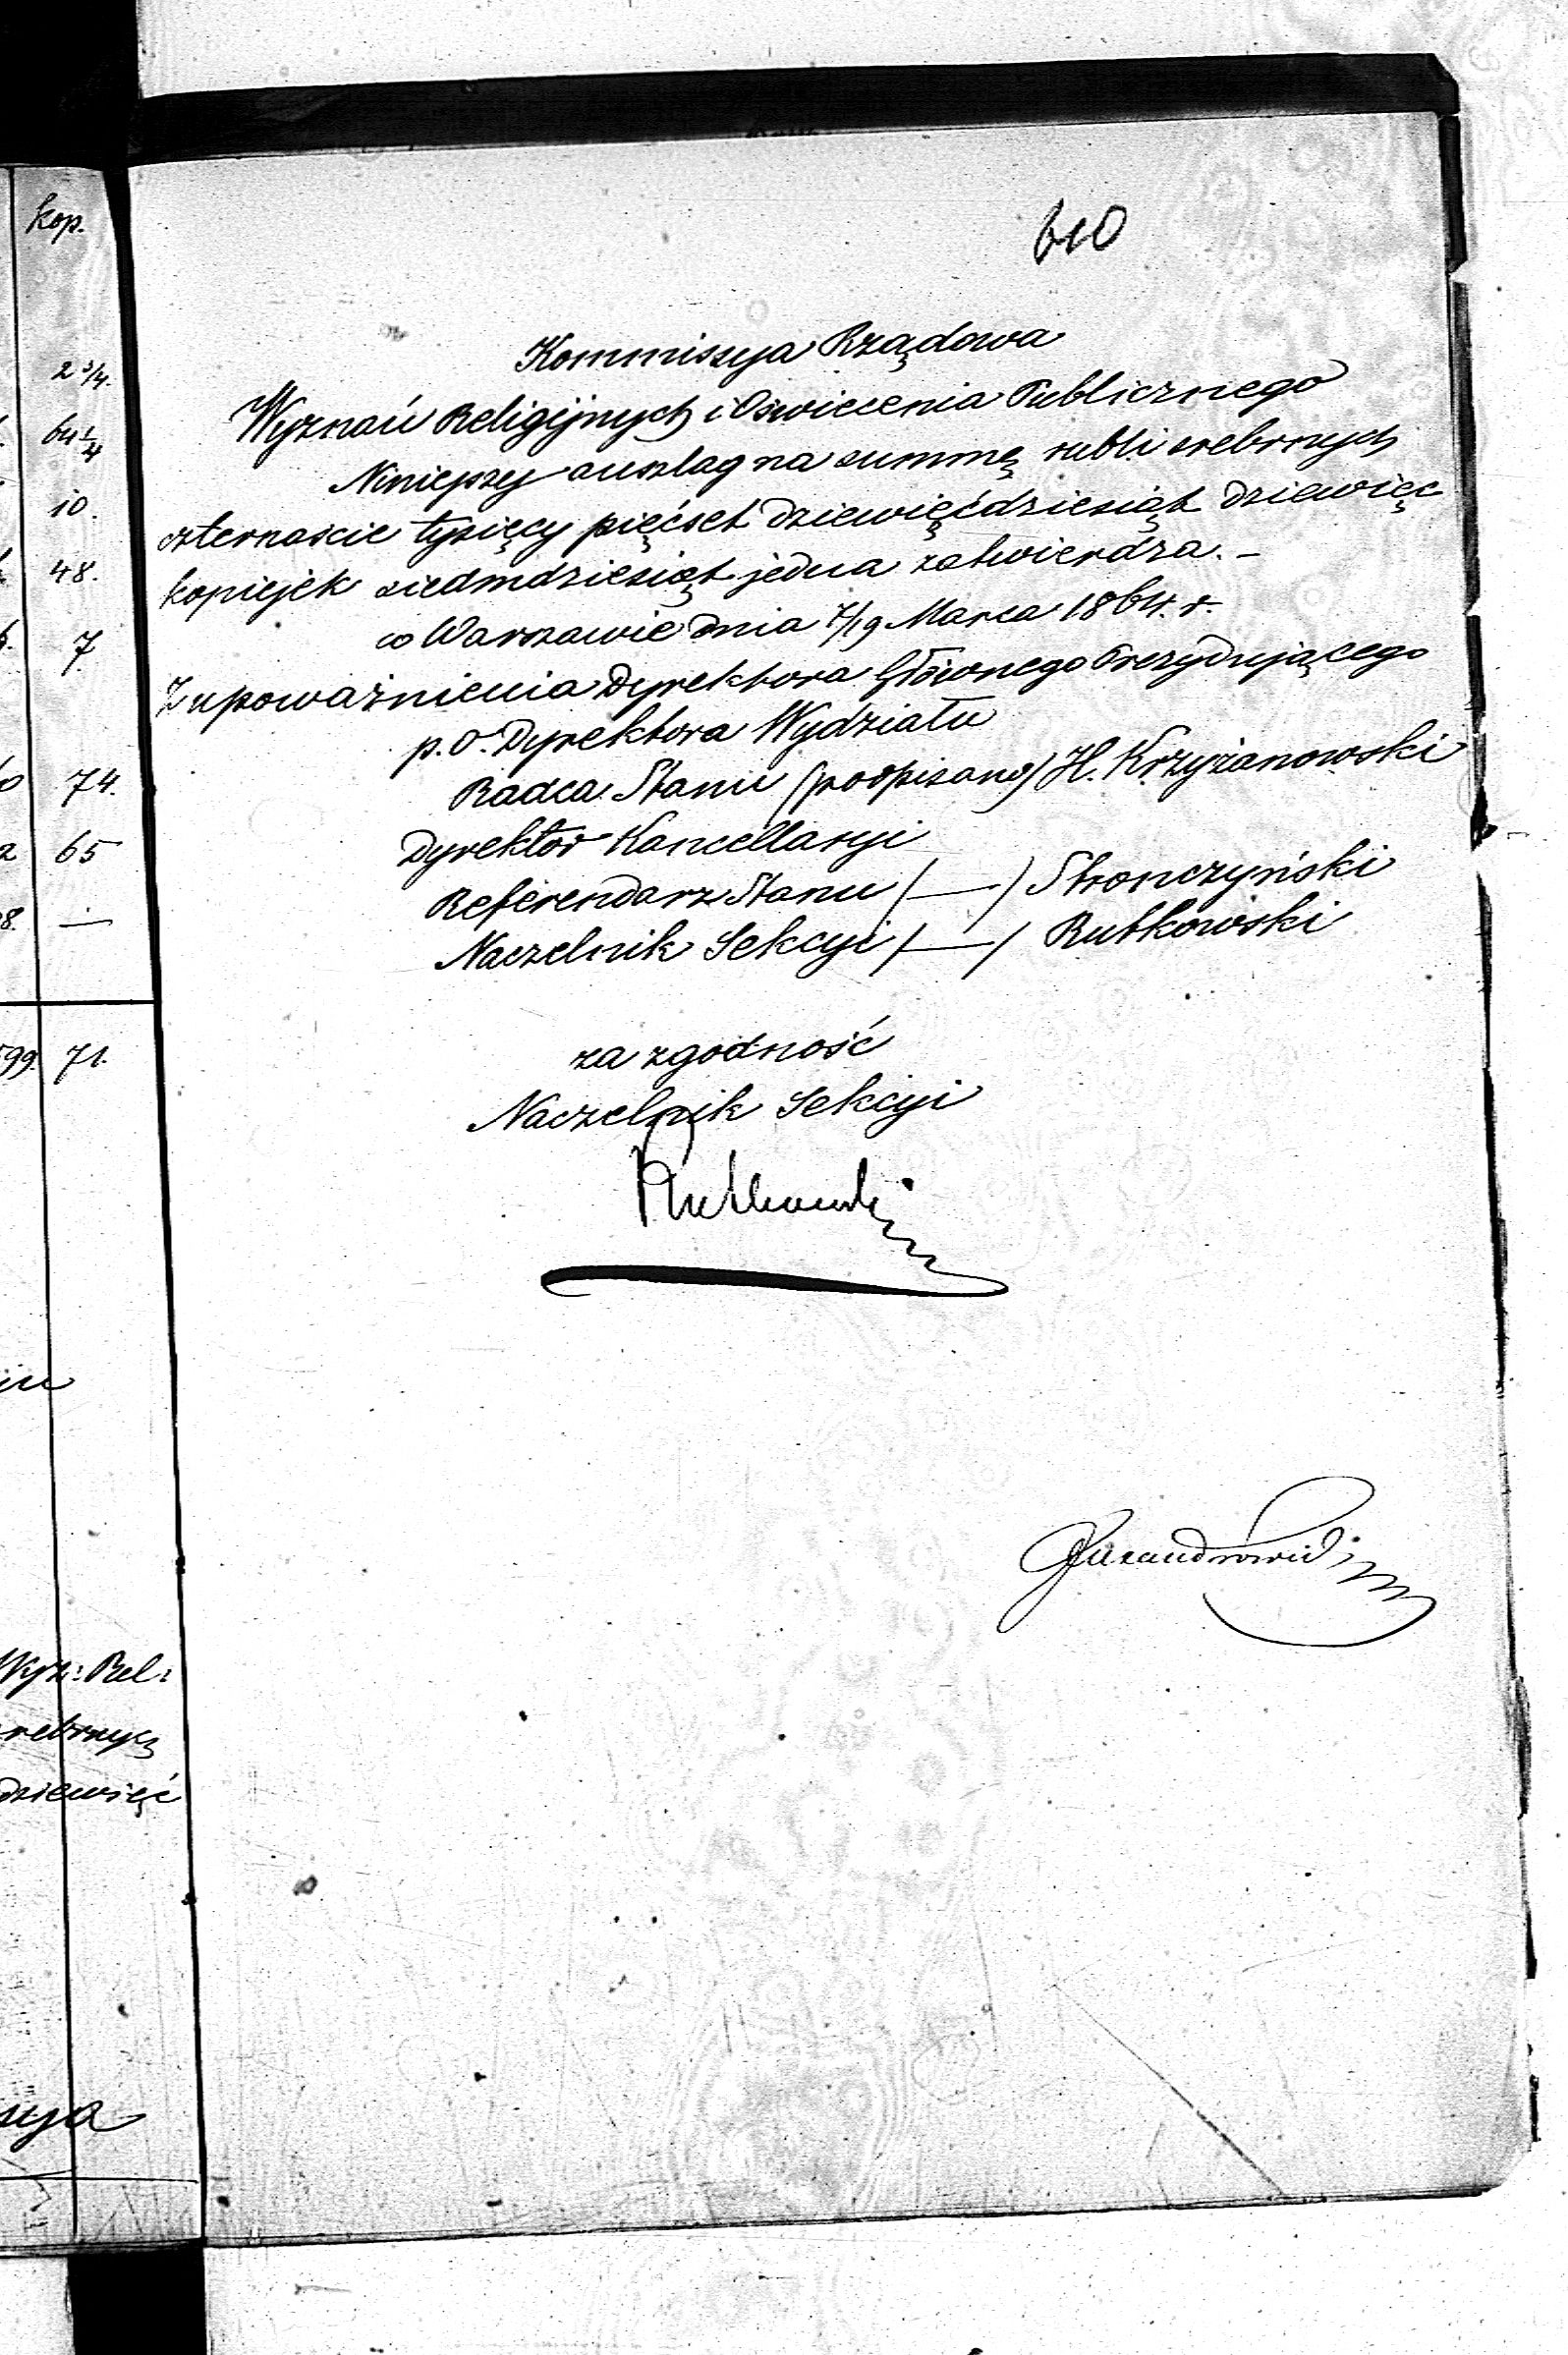 kop.
2 3/4.
64 1/4
10.
48.
7
74.
65
—
99. 71.
Wyz: Rel:
dziewięć
610
Kommissya Rządowa
Wyznań Religijnych i Oświecenia Publicznego
Niniejszy anszlag na summę rubli srebrnych
czternaście tysięcy pięćset dziewięćdziesiąt dziewięć
kopiejek siedmdziesiąt jedna zatwierdza. –
w Warszawie dnia 7/19 Marca 1864. r.
Z upoważnienia Dyrektora Głównego Prezydującego
p.o. Dyrektora Wydziału
Radca Stanu (podpisano) H. Krzyżanowski
Dyrektor Kancellaryi
Referendarz Stanu (—) Stronczyński
Naczelnik Sekcyi (—) Rutkowski
za zgodność
Naczelnik Sekcyi
Rutkowski